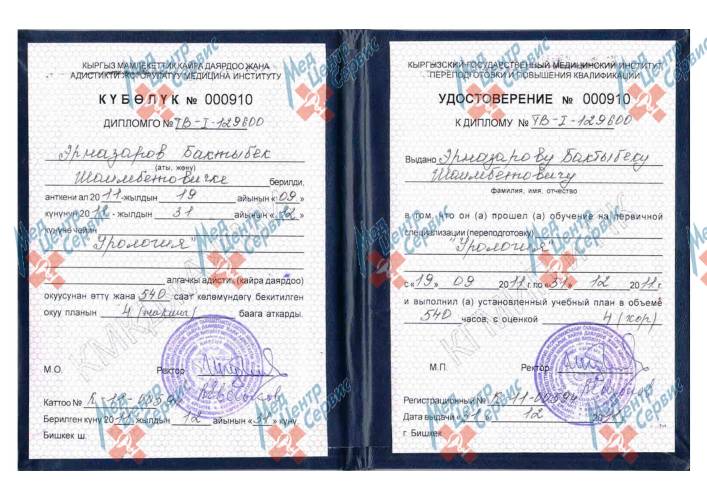 КЫРГЫЗ МАМЛЕКЕТТИК КАЙРА ДАЯРДОО ЖАНА
АДИСТИКТИ ЖОГОРУЛАТУУ МЕДИЦИНА ИНСТИТУТУ
КҮБӨЛҮК № 000910
ДИПЛОМГО № ТВ-I-129600
Ярназаров Бактыбек
(аты, жөнү)
Шаимбетовичке берилди,
анткени ал 2011-жылдын 19 айынын «09»
күнүнүн 2011-жылдын 31 айынын «12»
күнүнө чейин
"Урология"
алгачкы адистик (кайра даярдоо)
окуусунан өттү жана 540 саат көлөмүндөгү бекитилген
окуу планын 4 (жакшы) баага аткарды.
М.О. Ректор
Каттоо №
Берилген күнү 2011 жылдын 12 айынын «31» күнү
Бишкек ш.
КЫРГЫЗСКИЙ ГОСУДАРСТВЕННЫЙ МЕДИЦИНСКИЙ ИНСТИТУТ
ПЕРЕПОДГОТОВКИ И ПОВЫШЕНИЯ КВАЛИФИКАЦИИ
УДОСТОВЕРЕНИЕ № 000910
К ДИПЛОМУ № ТВ-I-129600
Выдано Ярназарову Бактыбеку
Шаимбетовичу
фамилия, имя, отчество
в том, что он (а) прошел (а) обучение на первичной
специализации (переподготовку)
"Урология"
с «19» 09 2011 г. по «31» 12 2011 г.
и выполнил (а) установленный учебный план в объеме
540 часов, с оценкой 4 (хор)
М.П. Ректор
Регистрационный № К-11-00594
Дата выдачи «31» 12 2011
г. Бишкек
Мед Центр Сервис